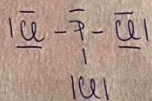 |C̅l̲| – P̅ – |C̅l̲|
|
|C̲l|